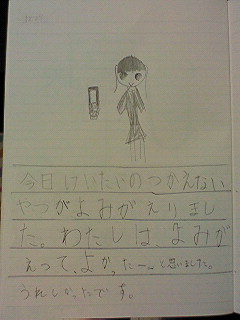 今日けいたいのつかえない
やつが、よみがえりまし
た。わたしは、よみが
えって、よかったーと思いました。
うれしかったです。